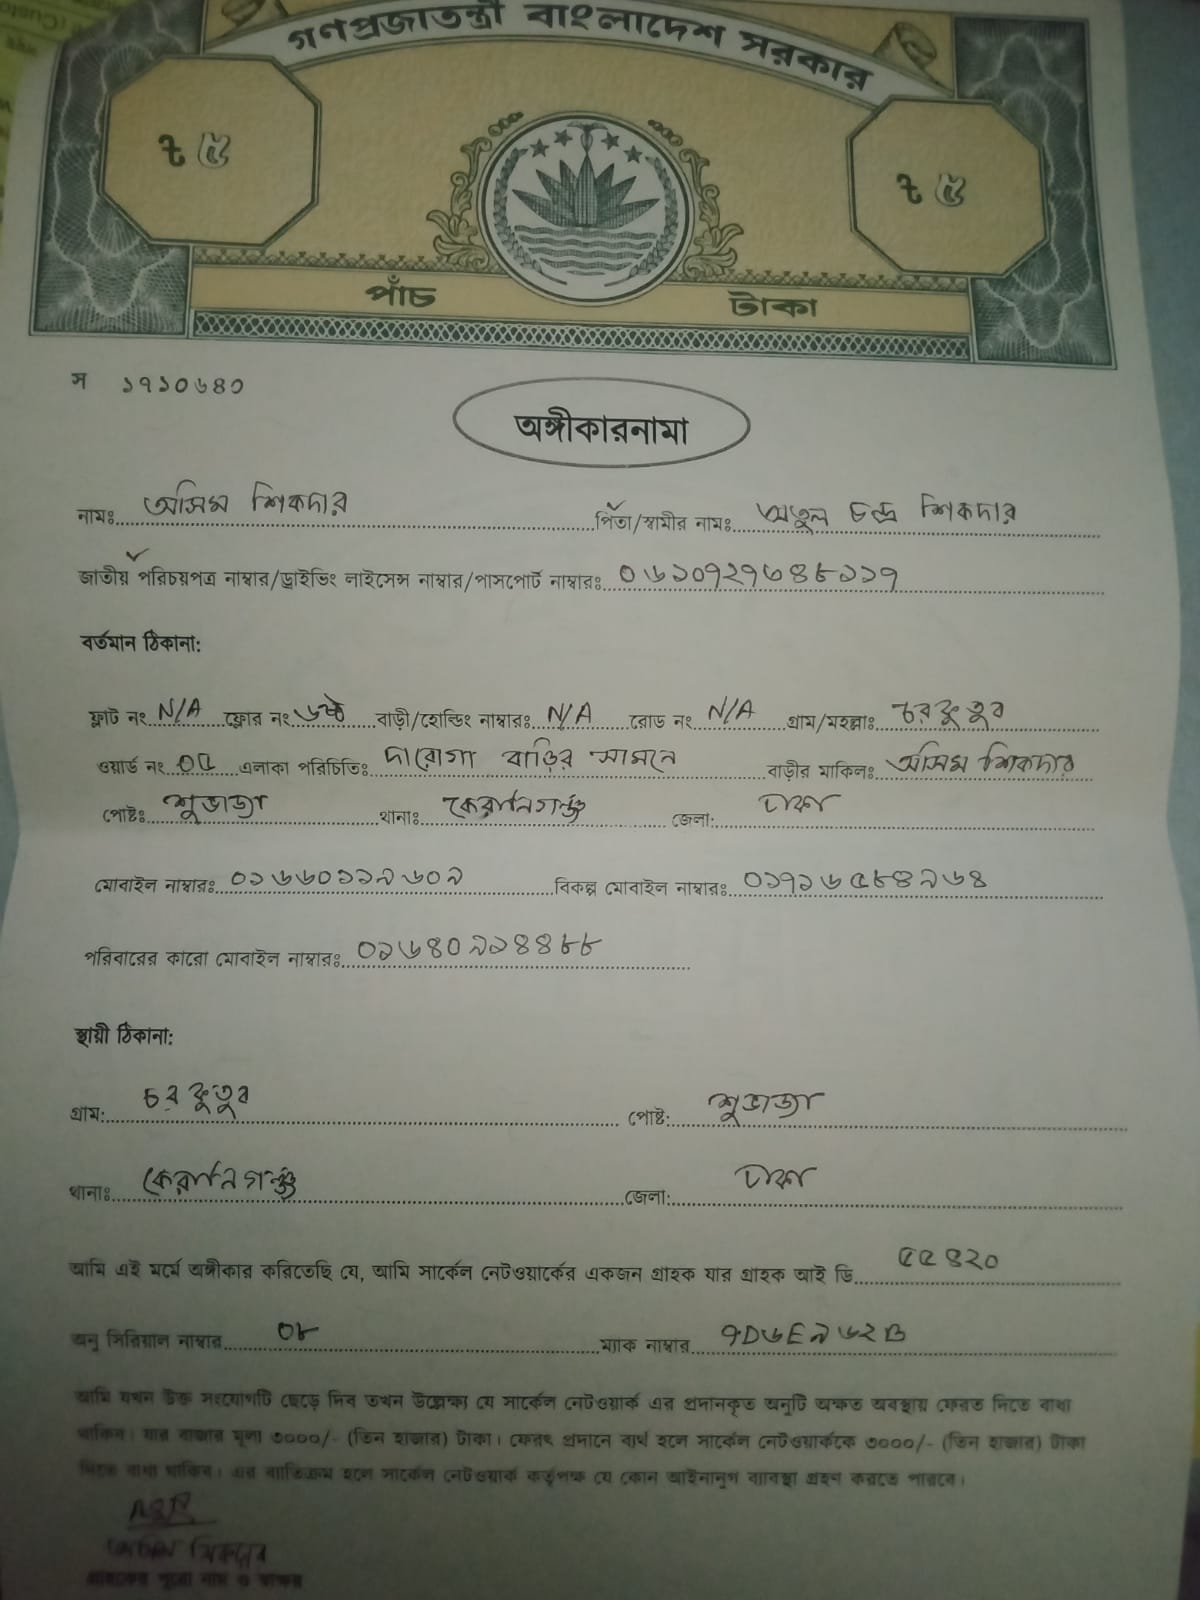 গণপ্রজাতন্ত্রী বাংলাদেশ সরকার
৳ ৫ ৳ ৫
পাঁচ টাকা
স ১৭১০৬৪০
অঙ্গীকারনামা
নামঃ অসিম শিকদার পিতা/স্বামীর নামঃ অতুল চন্দ্র শিকদার
জাতীয় পরিচয়পত্র নাম্বার/ড্রাইভিং লাইসেন্স নাম্বার/পাসপোর্ট নাম্বারঃ ০৬১০৭২৭৬৪৮১১৭
বর্তমান ঠিকানা:
ফ্লাট নং N/A ফ্লোর নং ৬ষ্ঠ বাড়ী/হোল্ডিং নাম্বারঃ N/A রোড নং N/A গ্রাম/মহল্লাঃ চরকুতুব
ওয়ার্ড নং ০৫ এলাকা পরিচিতিঃ দারোগা বাড়ির সামনে বাড়ীর মালিকঃ অসিম শিকদার
পোষ্টঃ শুভাড্যা থানাঃ কেরানিগঞ্জ জেলা: ঢাকা
মোবাইল নাম্বারঃ ০১৬৬০১১৯৬০৯ বিকল্প মোবাইল নাম্বারঃ ০১৭১৬৫৮৪৯৬৪
পরিবারের কারো মোবাইল নাম্বারঃ ০১৬৪০৯১৪৪৮৮
স্থায়ী ঠিকানা:
গ্রাম: চরকুতুব পোষ্ট: শুভাড্যা
থানাঃ কেরানিগঞ্জ জেলা: ঢাকা
আমি এই মর্মে অঙ্গীকার করিতেছি যে, আমি সার্কেল নেটওয়ার্কের একজন গ্রাহক যার গ্রাহক আই ডি ৫৫৪২০
অনু সিরিয়াল নাম্বার ০৮ ম্যাক নাম্বার ৭D৬E৯৬২B
আমি যখন উক্ত সংযোগটি ছেড়ে দিব তখন উল্লেক্ষ্য যে সার্কেল নেটওয়ার্ক এর প্রদানকৃত অনুটি অক্ষত অবস্থায় ফেরত দিতে বাধ্য
থাকিব। যার বাজার মূল্য ৩০০০/- (তিন হাজার) টাকা। ফেরৎ প্রদানে ব্যর্থ হলে সার্কেল নেটওয়ার্ককে ৩০০০/- (তিন হাজার) টাকা
দিতে বাধ্য থাকিব। এর ব্যতিক্রম হলে সার্কেল নেটওয়ার্ক কর্তৃপক্ষ যে কোন আইনানুগ ব্যবস্থা গ্রহণ করতে পারবে।
অসিম শিকদার
গ্রাহকের পুরো নাম ও স্বাক্ষর